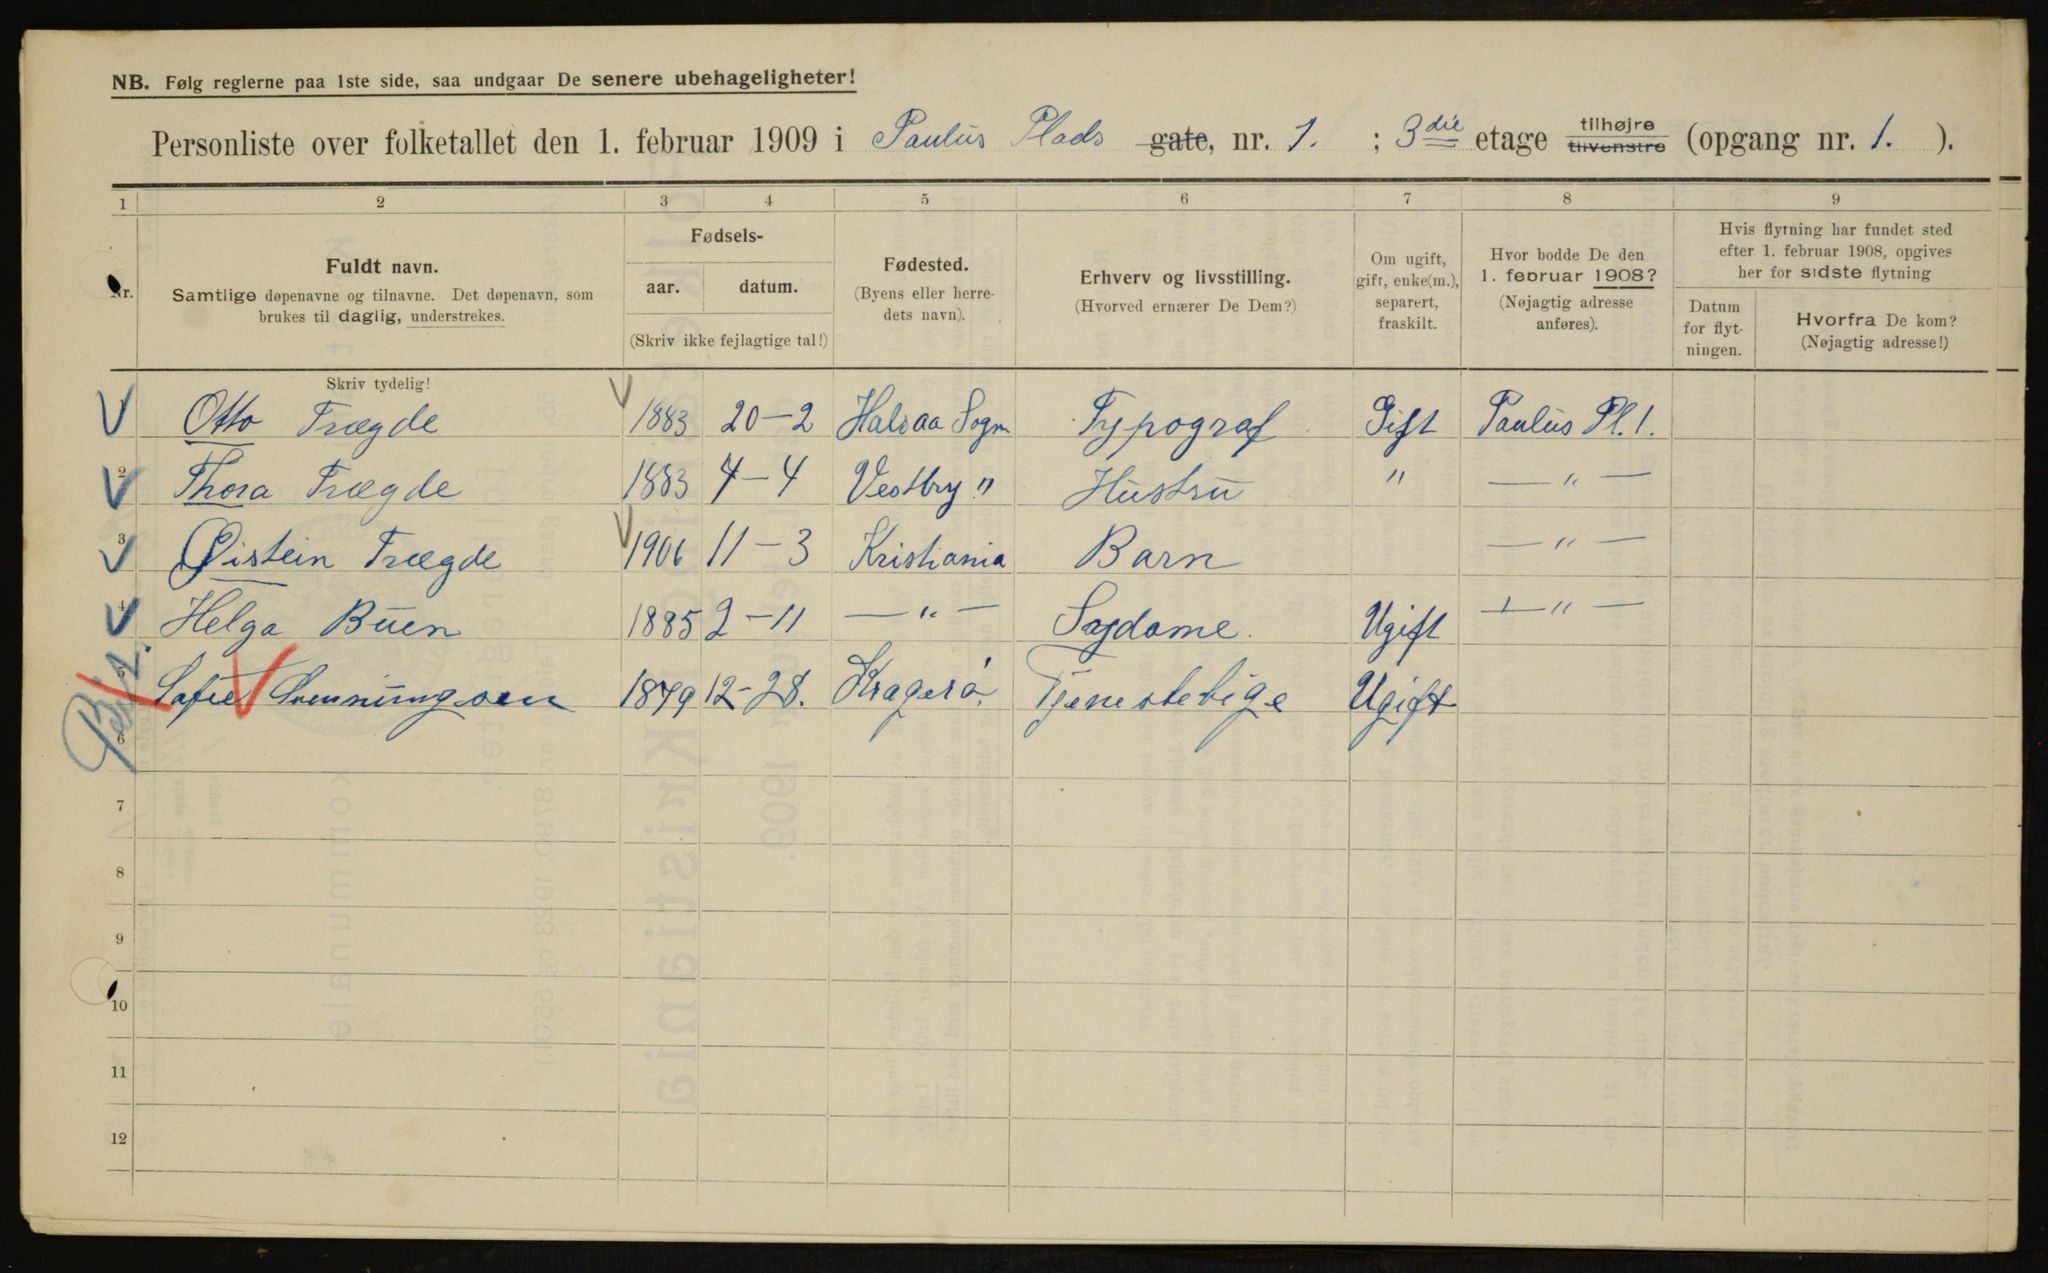 NB. Følg reglerne paa 1ste side, saa undgaar De senere ubehageligheter!
Personliste over folketallet den 1. februar 1909 i Paulus Plads gate, nr. 1. ; 3die etage tilhøjre tilvenstre (opgang nr. 1. ).
1 2 3 4 5 6 7 8 9
Nr. Fuldt navn. Samtlige døpenavne og tilnavne. Det døpenavn, som brukes til daglig, understrekes. Skriv tydelig!
Fødsels- aar. datum. (Skriv ikke fejlagtige tal!)
Fødested. (Byens eller herredets navn).
Erhverv og livsstilling. (Hvorved ernærer De Dem?)
Om ugift, gift, enke(m.), separert, fraskilt.
Hvor bodde De den 1. februar 1908? (Nøjagtig adresse anføres).
Hvis flytning har fundet sted efter 1. februar 1908, opgives her for sidste flytning
Datum for flytningen. Hvorfra De kom? (Nøjagtig adresse!)
1 Otto Trægde 1883 20-2 Halsaa Sogn Typograf Gift Paulus Pl. 1.
2 Thora Trægde 1883 4-4 Vestby " Hustru " — " —
3 Øistein Trægde 1906 11-3 Kristiania Barn — " —
4 Helga Buen 1885 2-11 — " — Sydame. Ugift — " —
5 Sofie 1879 12-28. Kragerø. Tjenestebige Ugift
6
7
8
9
10
11
12